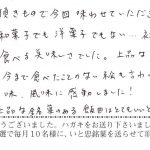 頂きもので今回味わせていただ
和菓子でも洋菓子でもない、
食べる美味しさでした。上品な
今まで食べたことのない
味、風味に感動しました!
上品な
うございました。ハガキをお送り下さいまし
選で毎月10名様に、いと忠銘菓を送らせて頂